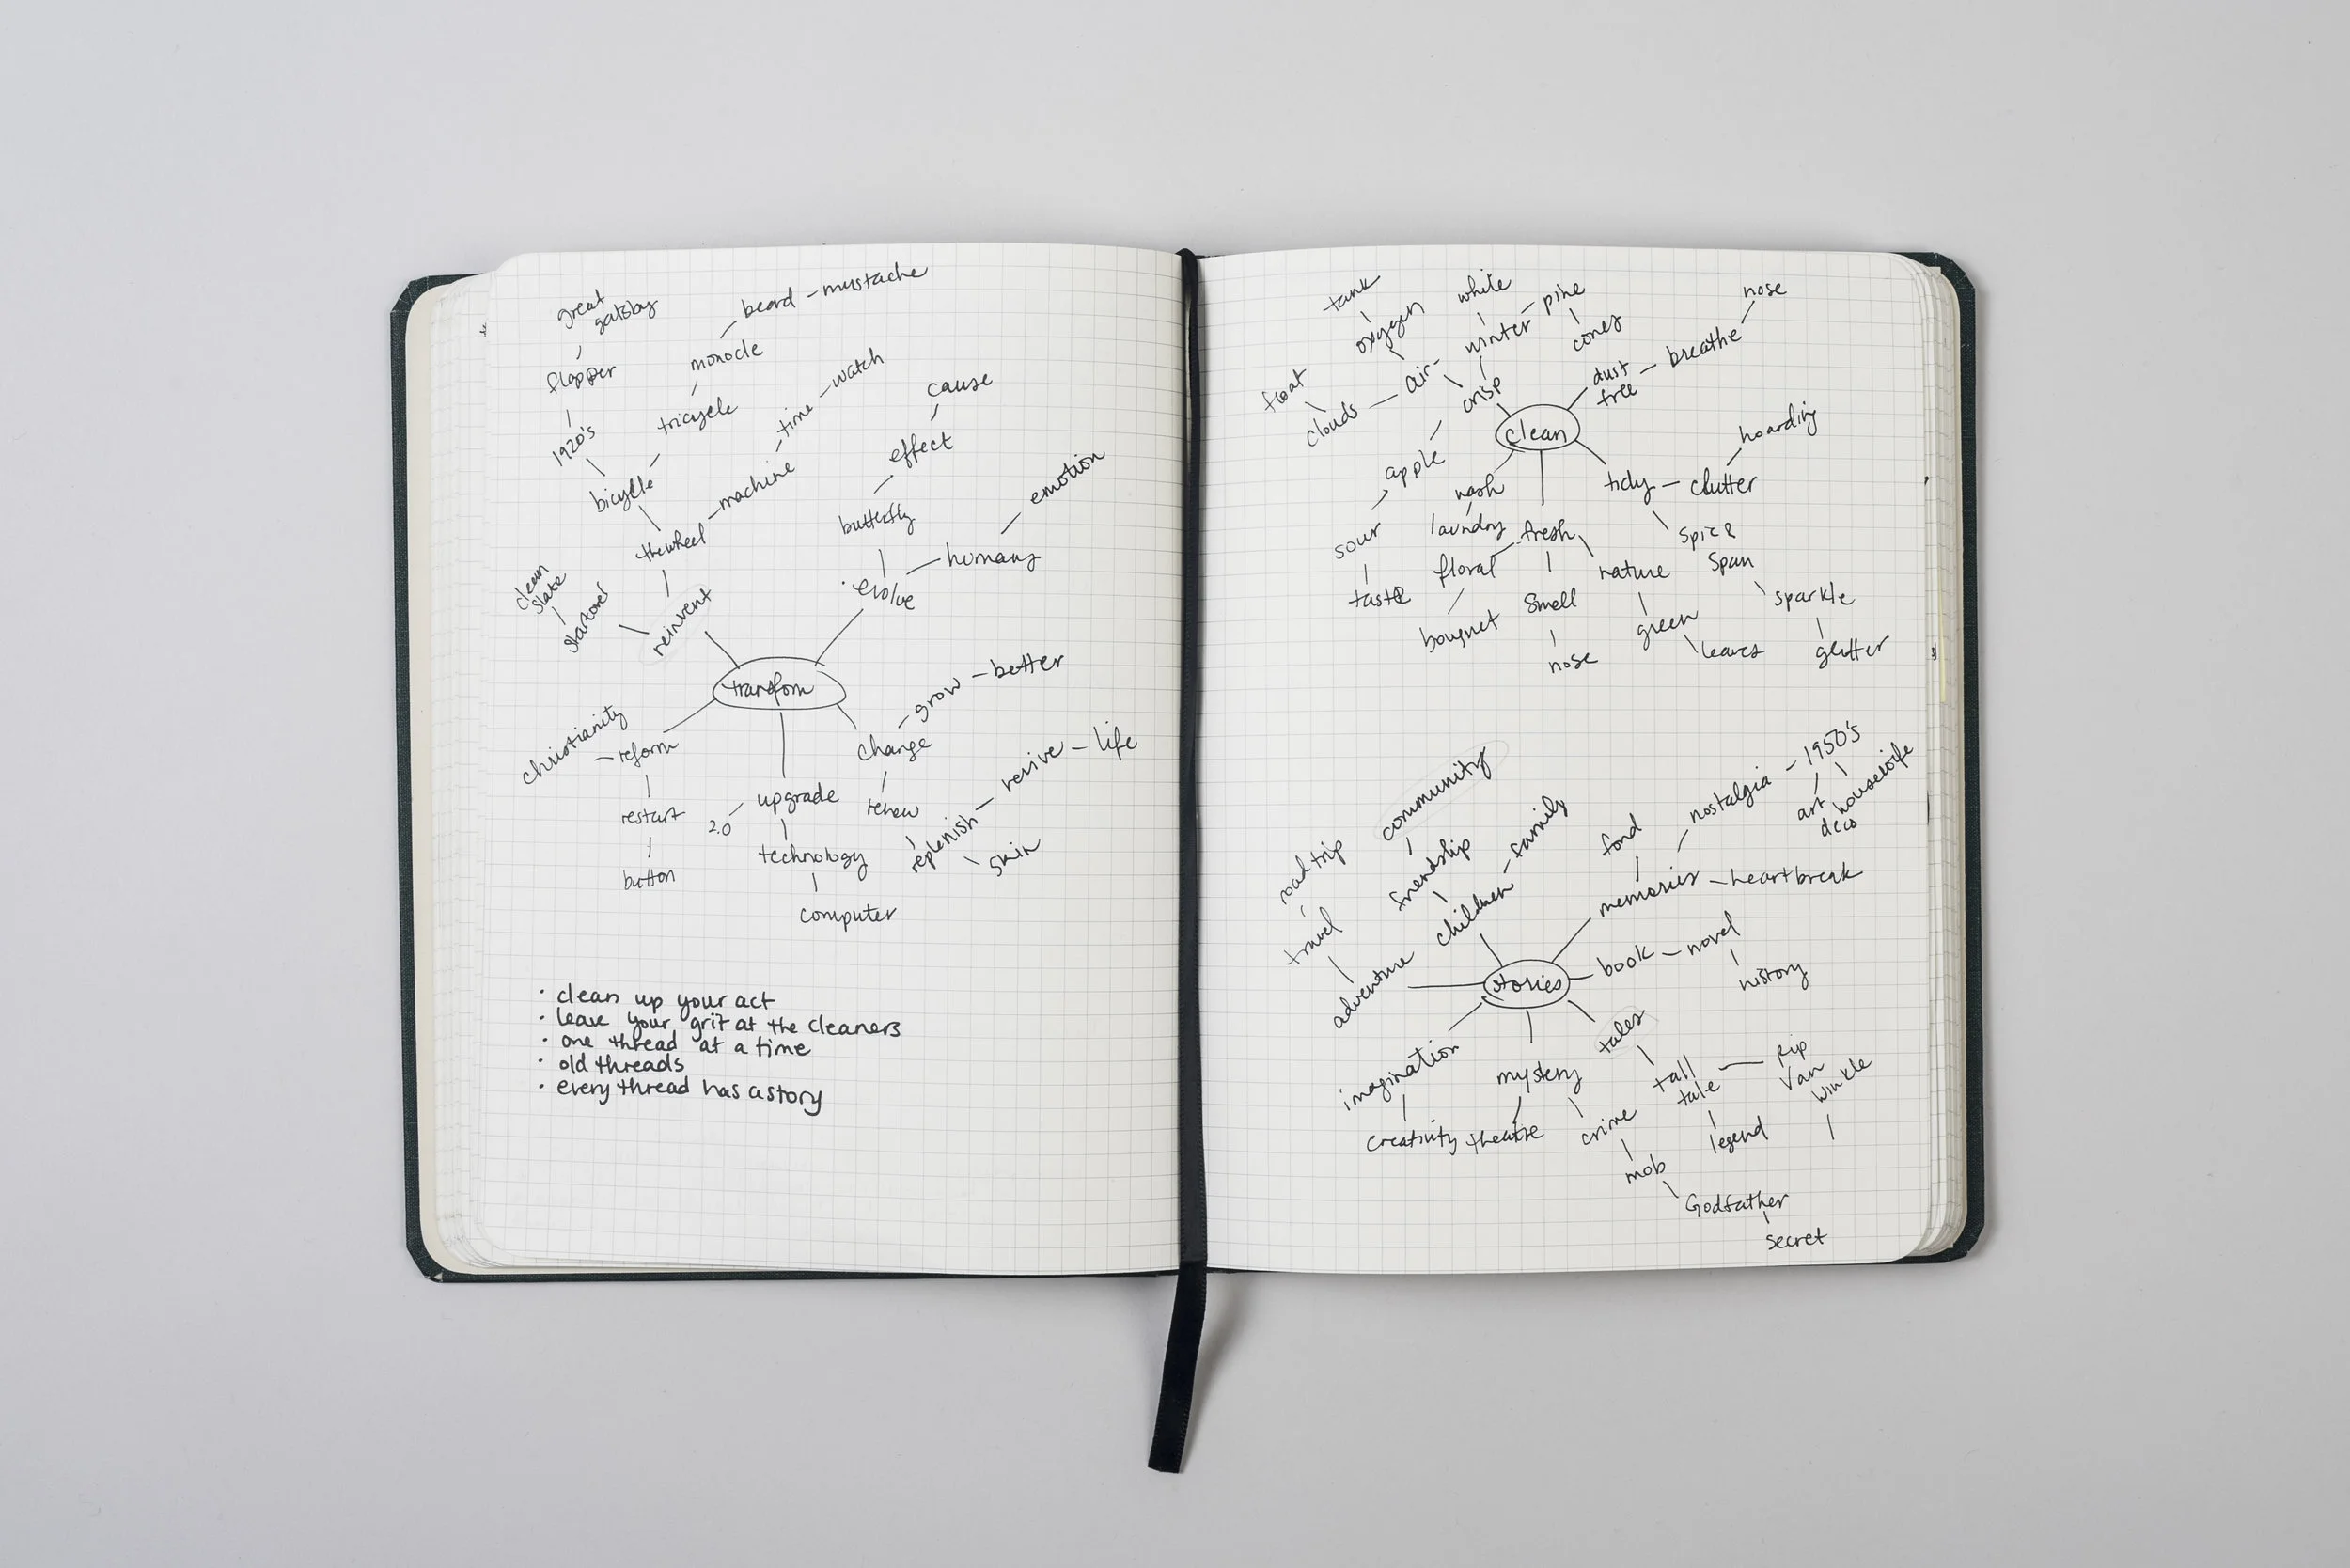 great
gatsby
flapper
1920's
beard - mustache
monocle
tricycle
bicycle
time - watch
machine
the wheel
cause
effect
butterfly
emotion
humans
evolve
clean
slate
start over
reinvent
transform
christianity
reform
restart
button
2.0
upgrade
technology
computer
grow - better
change
renew
replenish - revive - life
skin
· clean up your act
· leave your grit at the cleaners
· one thread at a time
· old threads
· every thread has a story
tank
oxygen
white
winter - pine
cones
float
clouds - air
crisp
nose
dust
free - breathe
clean
hoarding
tidy - clutter
apple
sour
taste
wash
laundry
fresh
floral
bouquet
smell
nose
nature
green
leaves
spic &
span
sparkle
glitter
community
friendship
children - family
road trip
travel
adventure
fond
nostalgia - 1950's
art
deco
housewife
memories - heartbreak
book - novel
history
stories
imagination
creativity
mystery
theatre
crime
mob
Godfather
secret
tales
tall
tale
legend
Rip
Van
Winkle